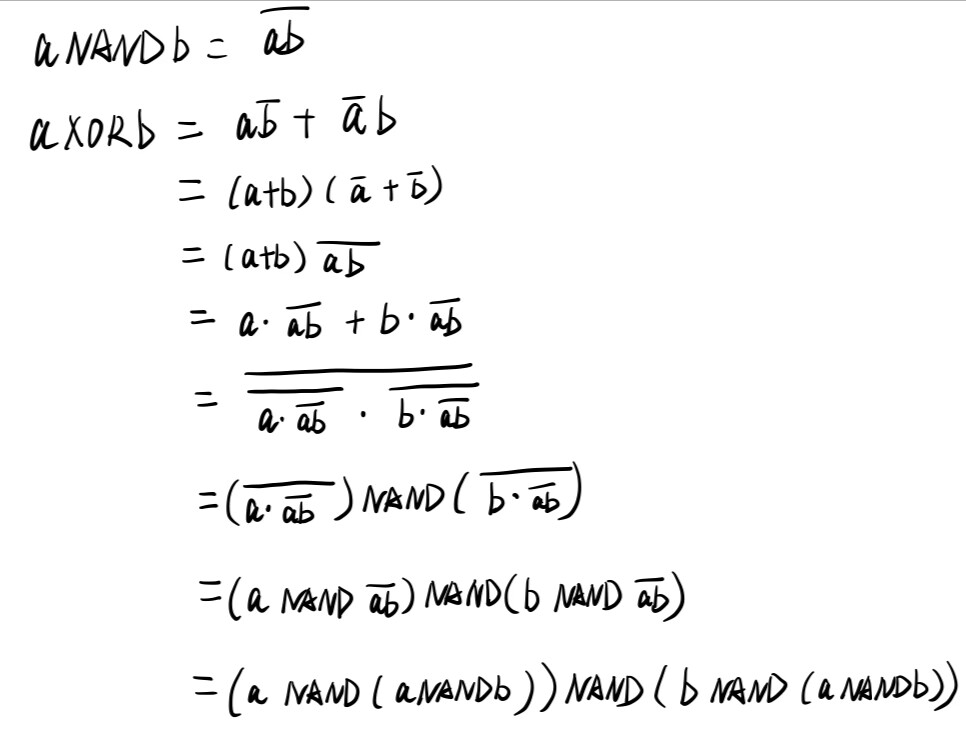 a NAND b = \overline{ab}
a XOR b = a\overline{b} + \overline{a}b
= (a+b)(\overline{a}+\overline{b})
= (a+b)\overline{ab}
= a·\overline{ab} + b·\overline{ab}
= \overline{\overline{a·\overline{ab}} · \overline{b·\overline{ab}}}
= (\overline{a·\overline{ab}}) NAND (\overline{b·\overline{ab}})
= (a NAND \overline{ab}) NAND (b NAND \overline{ab})
= (a NAND (a NAND b)) NAND (b NAND (a NAND b))